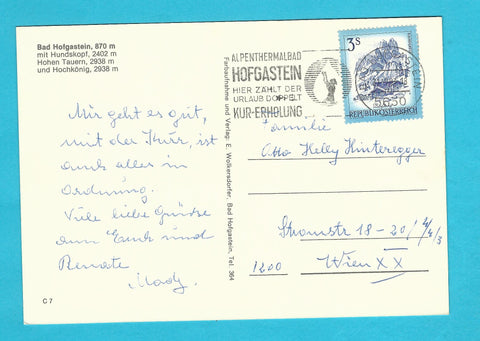 Bad Hofgastein, 870 m
mit Hundskopf, 2402 m
Hohen Tauern, 2938 m
und Hochkönig, 2938 m
Mir geht es gut,
mit der Kur, ist
auch alles in
Ordnung.
Viele liebe Grüsse
an Euch und
Renate
C 7
Farbaufnahme und Verlag: E. Wolkersdorfer, Bad Hofgastein, Tel. 364
ALPENTHERMALBAD
HOFGASTEIN
HIER ZÄHLT DER
URLAUB DOPPELT
KUR-ERHOLUNG
3 S
5630
REPUBLIK ÖSTERREICH
Familie
Otto Helly Hinteregger
Stromstr 18-20/4/4/3
1200 Wien XX